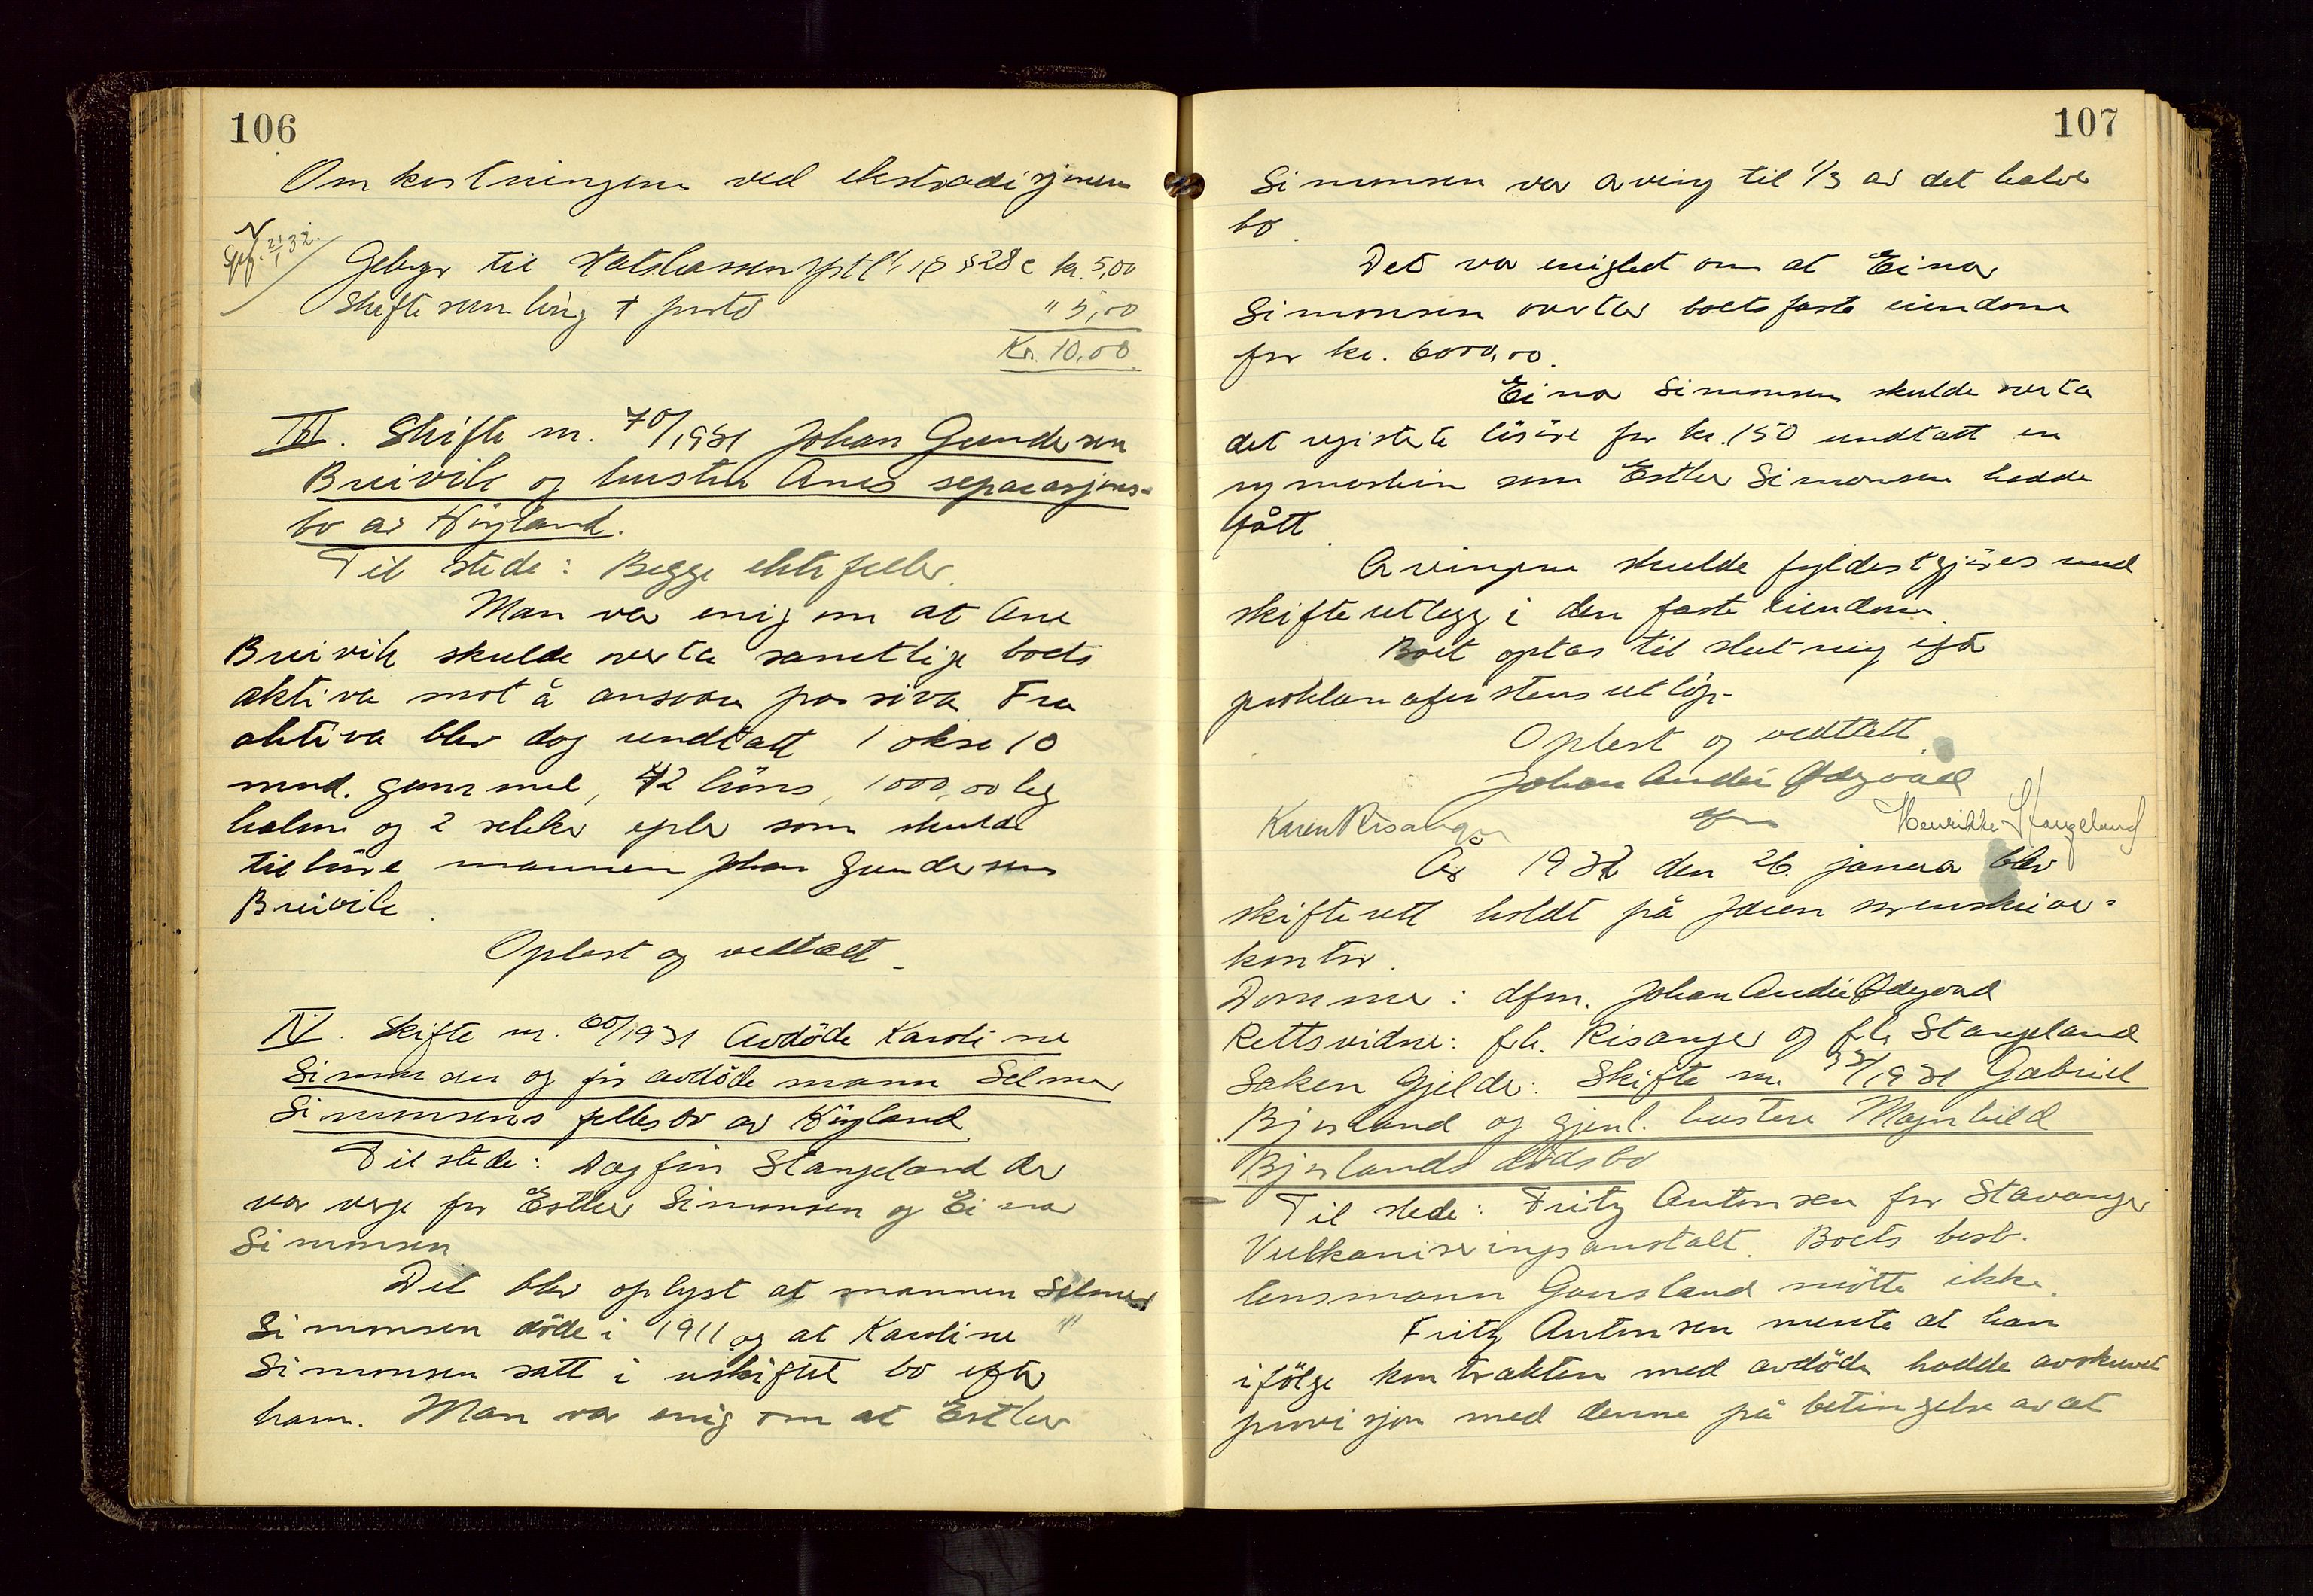 106
Omkostningene ved ekstradisjonen
21/1 32.
Gebyr til Statskassen § 28 c kr. 5,00
Skiftesamling + porto " 5,00
Kr. 10,00
III. Skifte nr. 70/1931 Johan Gundersen
Breivik og hustru Anes separasjons-
bo av Høyland.
Til stede: Begge ektefeller.
Man var enig om at Ane
Breivik skulde overta samtlige boets
aktiva mot å ansvare passiva. Fra
aktiva blev dog undtatt 1 okse 10
mnd. gammel, 42 höns, 1000,00 kg
halm og 2 sekker epler som skulde
tilhöre mannen Johan Gundersen
Breivik.
Oplest og vedtatt.
IV. Skifte nr. 60/1931 Avdöde Karoline
Simonsen og för avdöde mann Selmer
Simonsens fellesbo av Höyland
Til stede: Dagfin Stangeland der
var verge for Esther Simonsen og Einar
Simonsen
Det blev oplyst at mannen Selmer
Simonsen döde i 1911 og at Karoline
Simonsen satt i uskiftet bo efter
ham. Man var enig om at Esther
107
Simonsen var arving til 1/3 av det halve
bo.
Det var enighet om at Einar
Simonsen overtar boets faste eiendom
for kr. 6000,00.
Einar Simonsen skulde overta
det registerte lösöre for kr. 150 undtatt en
symaskin som Esther Simonsen hadde
fått.
Arvingene skulde fyldestgjöres med
skifteutlegg i den faste eiendom.
Boet optas til slutning efter
proklamafristens utlöp.
Oplest og vedtatt.
Johan André Ødegaard
Karen Risanger dfm Henrikke Stangeland
År 1932 den 26. januar blev
skifterett holdt på Jæren sorenskriver-
kontor.
Dommer: dfm. Johan André Ødegaard
Rettsvidne: frk. Risanger og frk. Stangeland
Saken Gjelder: Skifte nr. 1931 Gabriel
Bjorland og gjenl. hustru Magnhild
Bjorlands dödsbo
Til stede: Fritz Antonsen for Stavanger
Vulkaniseringsanstalt. Boets best.
lensmann Gausland mötte ikke.
Fritz Antonsen mente at han
ifölge kontrakten med avdöde hadde avskrevet
provisjon med denne på betingelse av at